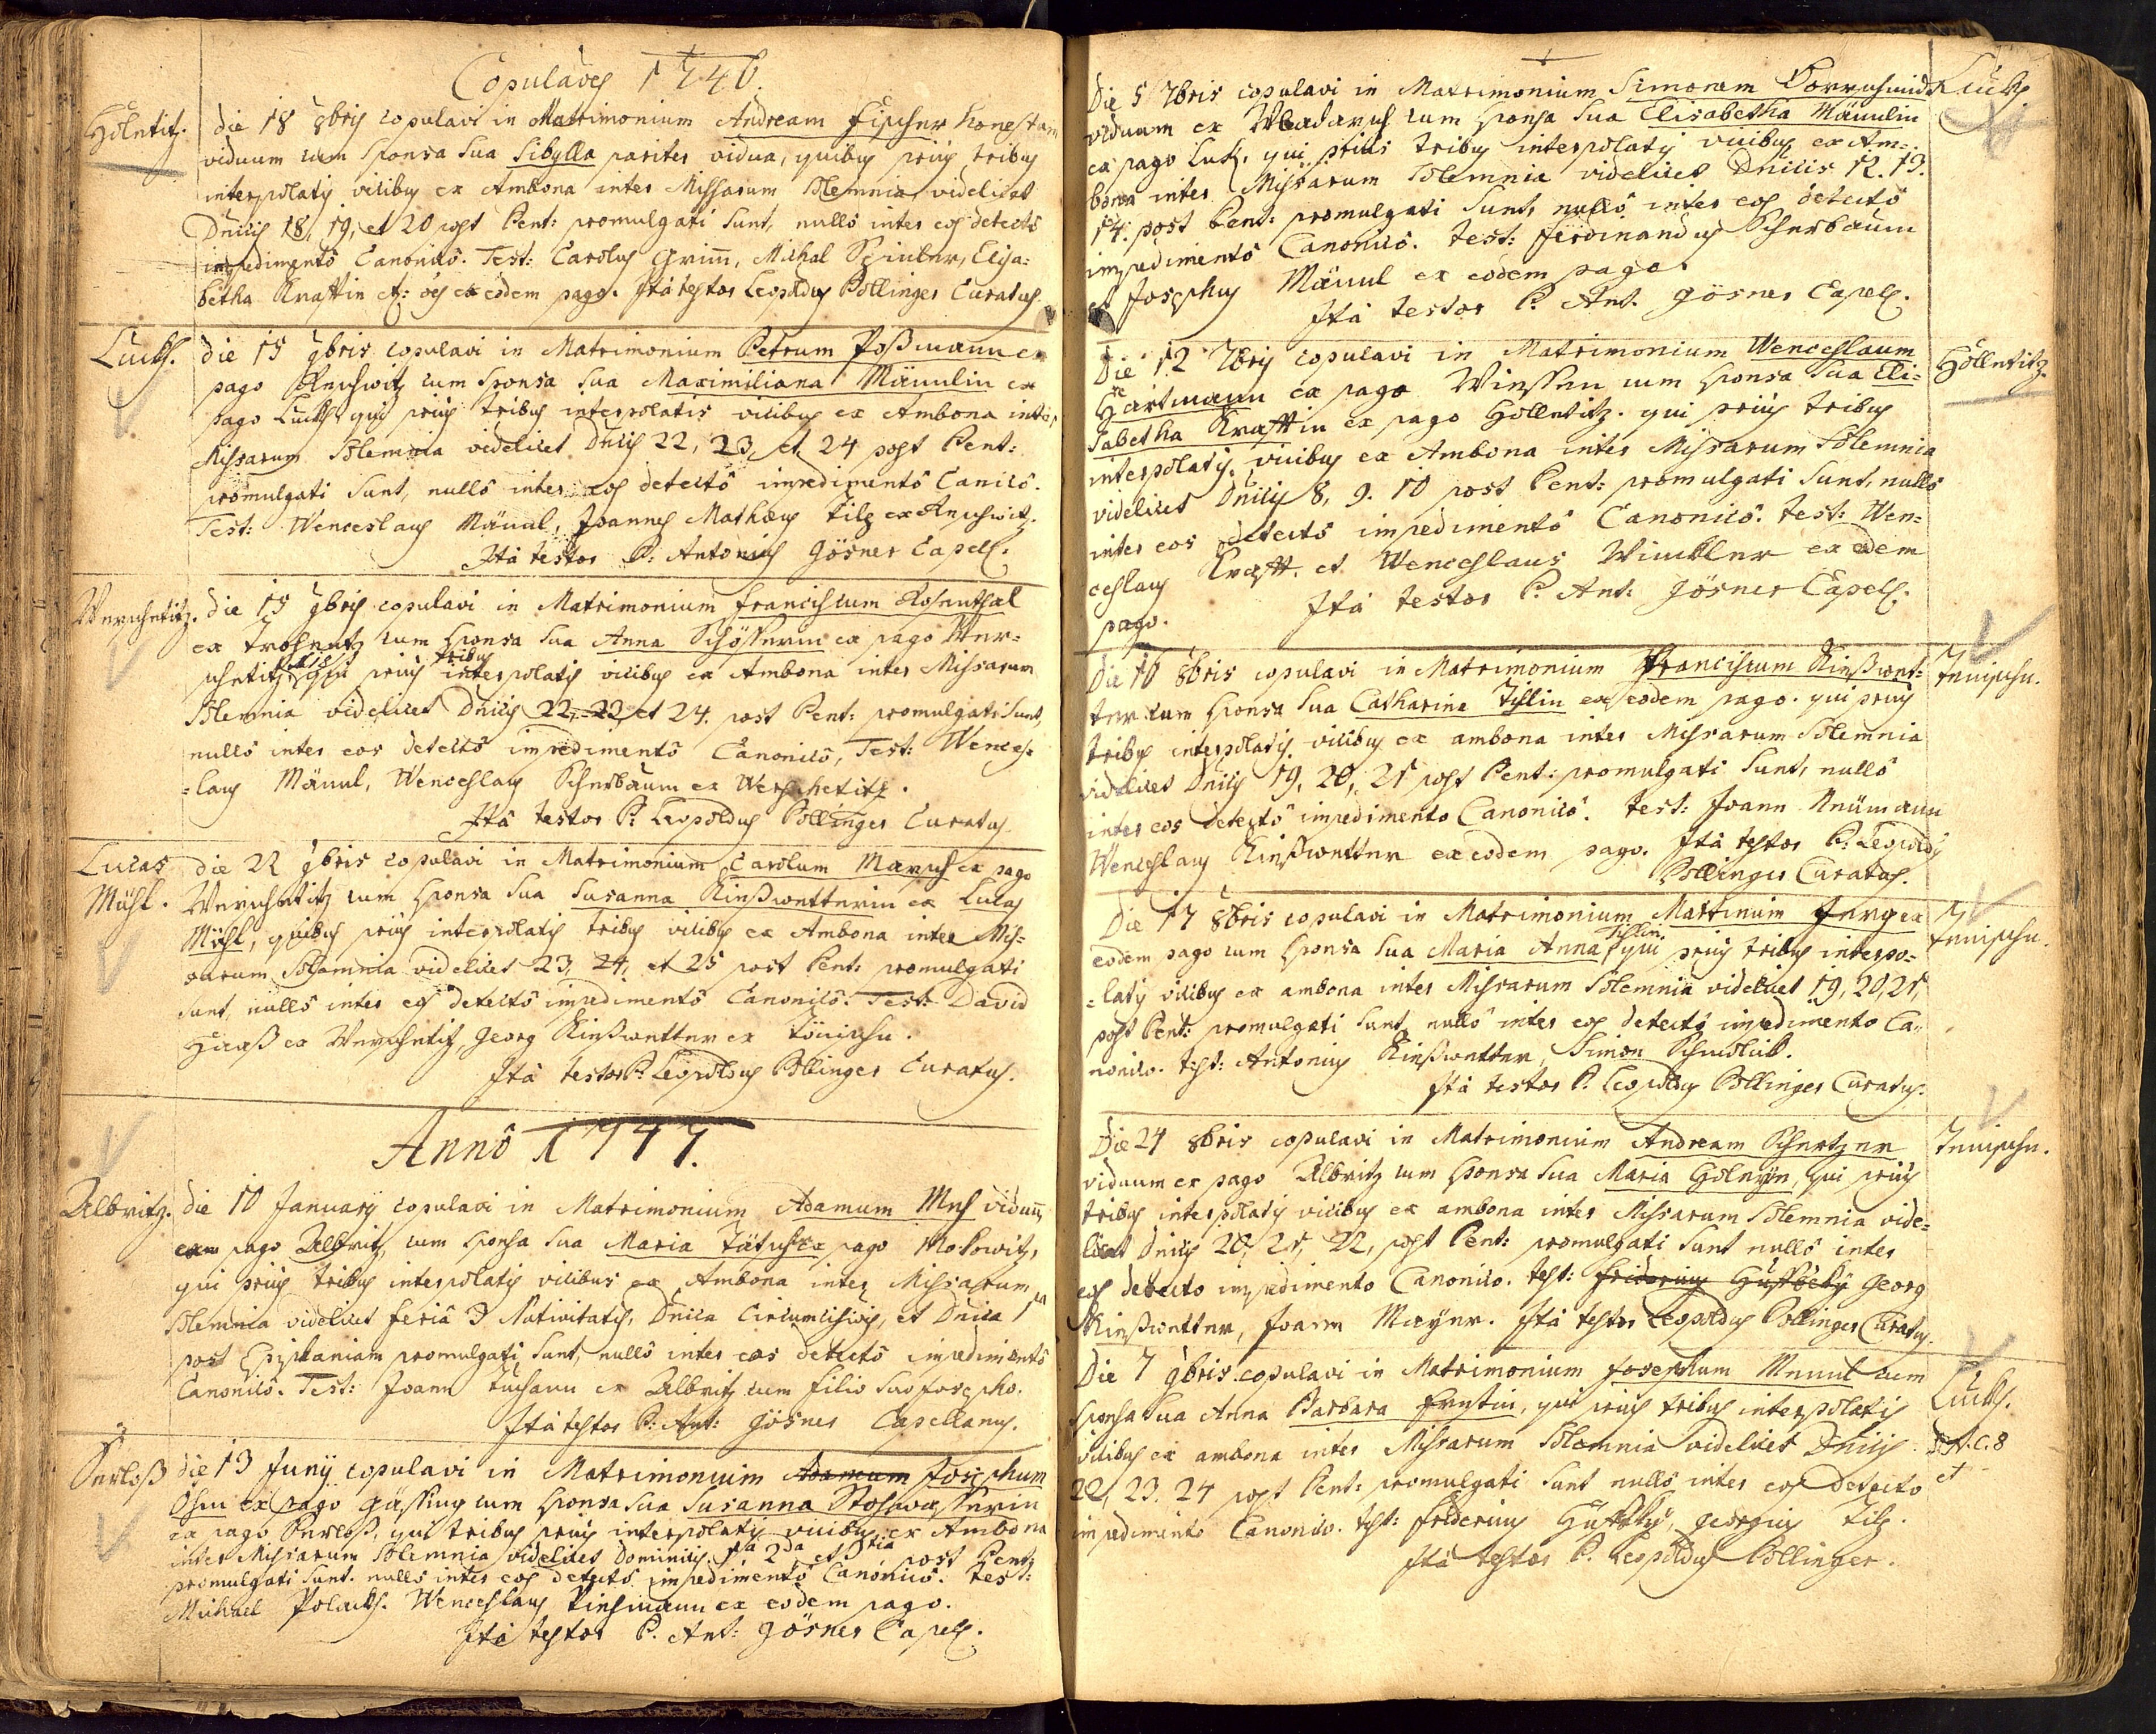 Copulavi 1746.
Hölletitz. die 18 8bris copulavi in Matrimonium Andream Fischer honestum
viduum cum sponsa sua Sibylla pariter vidua, quibus prius tribus
interpolatis vicibus ex Ambona inter Missarum Solemnia videlicet
Dnicis 18, 19, et 20 post Pent: promulgati sunt, nullo inter eos detecto
impedimento Canonico. Test: Carolus Grim̄, Michal Elisa=
betha Krafftin et: oes ex eodem pago. Ità testor Leopoldus Pollinger Curatus.
Luck. die 15 9bris copulavi in Matrimonium Petrum Poßmann ex
pago cum Sponsa sua Maximiliana Männlin ex
pago Luck, qui prius tribus interpolatis vicibus ex Ambona inter
Missarum Solemnia videlicet Dnicis 22, 23, et 24 post Pent:
promulgati sunt, nullô inter eos detectô impedimentô Canicô.
Test: Wenceslaus Mänul, Joannes Mathæus Tilp ex
Ità testor P: Antonius Gösner Capell.
Weruchetitz. die 15 9bris copulavi in Matrimonium Franciscum Rosenthal
ex cum sponsa sua Anna ex pago Wer=
uchetitz, qui prius tribus interpolatis vicibus ex Ambona inter Missarum
Solemnia videlicet Dnicis 22, 23 et 24. post Pent: promulgati sunt,
nullô inter eos detectô impedimentô Canonicô, Test: Wences=
=laus Mänul, Wenceslaus Scherbaum ex Werschetitz.
Ità testor P: Leopoldus Pollinger Curatus.
Lucas
Mühl. die 22 9bris copulavi in Matrimonium Carolum ex pago
Weruchetitz cum sponsa sua Susanna Kießwetterin ex Lucas
Mühl, quibus prius interpolatis tribus vicibus ex Ambona inter Mis=
sarum Solemnia videlicet 23, 24, et 25 post Pent: promulgati
sunt, nullô inter eos detectô impedimentô Canonicô. Test: David
Haaß ex Weruchetitz, Georg Kießwetter ex
Ità testor P: Leopoldus Pollinger Curatus.
Annô 1747.
Albritz. die 10 January copulavi in Matrimonium Adamum viduum
ex pago Albritz, cum sponsa sua Maria ex pago
qui prius tribus interpolatis vicibus ex Ambona inter Missarum
Solemnia videlicet feriâ 3 Nativitatis, Dnica Circumcisionis, et Dnica 1ma
post Epiphaniam promulgati sunt, nullô inter eos detectô impedimentô
Canonicô. Test: Joann ex Albritz cum filio suo Josepho.
Ità testor P: Ant: Gösner Capellanus.
die 13 Junÿ copulavi in Matrimonium Adamum Josephum
ex pago cum sponsa sua Susanna
ex pago qui tribus prius interpolatis vicibus ex Ambona
inter Missarum Solemnia videlicet Dominicis 1ma 2da et 3tia post Pent:
promulgati sunt. nullô inter eos detectô impedimentô Canonicô. Test:
Michael Polack. Wenceslaus ex eodem pago.
Ità testor P. Ant: Gösner Capell.
Die 5 7bris copulavi in Matrimonium Simonem Dorrschmidt Luck.
viduum ex cum sponsa sua Elisabetha Mänulin
ex pago Luck, qui prius tribus interpolatis vicibus ex Am=
bona inter Missarum Solemnia videlicet Dnicis 12. 13.
14. post Pent: promulgati sunt, nullô inter eos detectô
impedimentô Canonicô. Test: Ferdinandus Scherbaum
et Josephus Mänul ex eodem pago.
Ità testor P. Ant. Gösner Capell.
Die 12 7bris copulavi in Matrimonium Wenceslaum Höllentitz.
Hartmann ex pago cum sponsa sua Eli=
sabetha Krafftin ex pago Hollntitz. qui prius tribus
interpolatis vicibus ex Ambona inter Missarum Solemnia
videlicet Dnicis 8, 9. 10 post Pent: promulgati sunt, nullô
inter eos detectô impedimentô Canonicô. Test: Wen=
ceslaus Krafft. et Wenceslaus Winckler ex eodem
pago. Ità testor P. Ant: Gösner Capell.
Die 16 8bris copulavi in Matrimonium Franciscum Kießwet=
ter cum sponsa sua Catharina ex eodem pago. qui prius
tribus interpolatis vicibus ex ambona inter Missarum Solemnia
videlicet Dnicis 19, 20, 21 post Pent: promulgati sunt, nullô
inter eos detectô impedimento Canonicô. Test: Joann
Wenceslaus Kießwetter ex eodem pago. Ità testor P. Leopoldus
Pollinger Curatus.
Die 17 8bris copulavi in Matrimonium Martinum ex
eodem pago cum sponsa sua Maria Anna qui prius tribus interpo=
=latis vicibus ex ambona inter Missarum Solemnia videlicet 19, 20, 21,
post Pent: promulgati sunt, nullô inter eos detectô impedimento Ca=
nonico. Test: Antonius Kießwetter, Simon
Ità testor P. Leopoldus Pollinger Curatus.
Die 24 8bris copulavi in Matrimonium Andream
viduum ex pago Albritz cum sponsa sua Maria qui prius
tribus interpolatis vicibus ex ambona inter Missarum Solemnia vide=
licet Dnicis 20, 21, 22, post Pent: promulgati sunt nullô inter
eos detecto impedimento Canonico. Test: Georg
Kießwetter, Joann Mayer. Ità testor Leopoldus Pollinger Curatus.
Die 7 9bris copulavi in Matrimonium Josephum cum Luck.
sponsa sua Anna Barbara qui prius tribus interpolatis
vicibus ex ambona inter Missarum Solemnia videlicet Dnicis
22, 23. 24 post Pent: promulgati sunt nullô inter eos detecto
impedimento Canonico. Test: Fridericus Georgius Tilp.
Ità testor P. Leopoldus Pollinger.